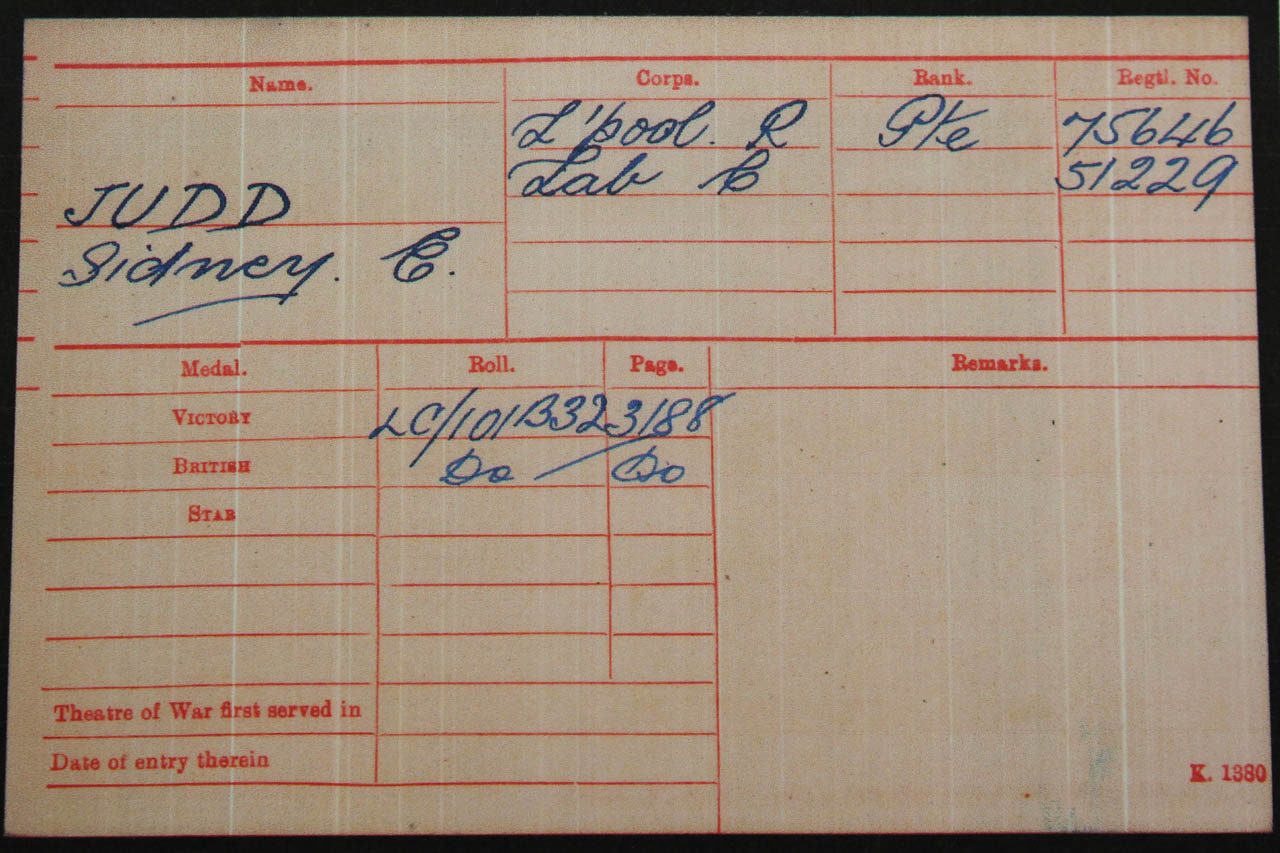 Name. Corps. Rank. Regtl. No.
L'pool. R Pte 75646
Lab C 51229
JUDD
Sidney. C.
Medal. Roll. Page. Remarks.
VICTORY LC/101B32 3188
BRITISH Do Do
STAR
Theatre of War first served in
Date of entry therein
K. 1380